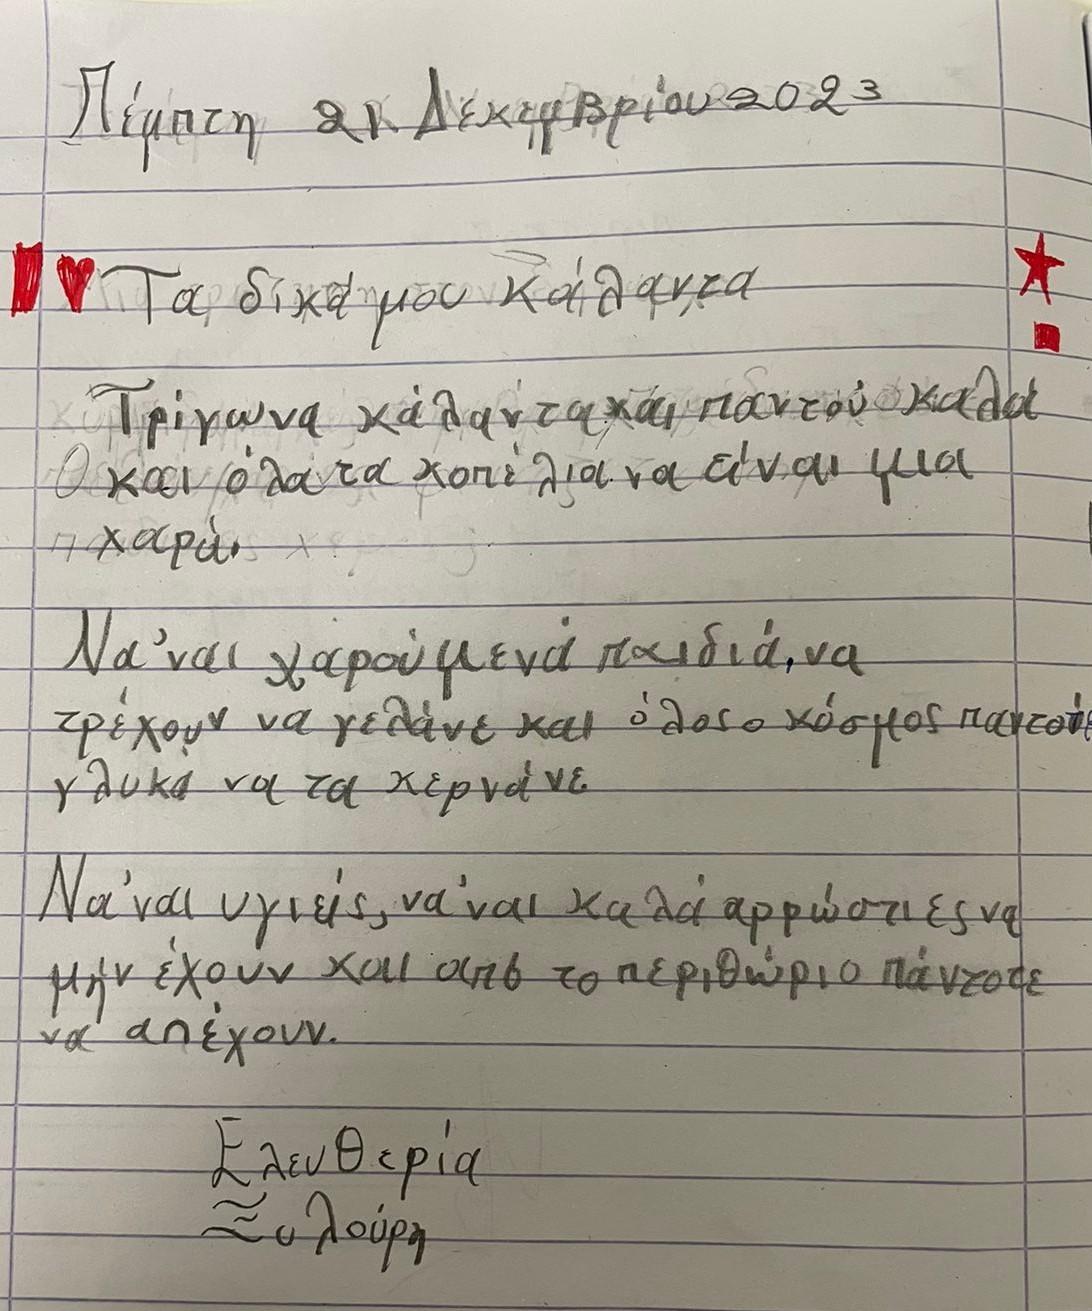 Πέμπτη 21 Δεκεμβρίου 2023
Τα δικά μου κάλαντα
Τρίγωνα κάλαντα και παντού καλά
και όλα τα κοπέλια να είναι μια
χαρά.
Να'ναι χαρούμενά παιδιά, να
τρέχουν να γελάνε και όλος ο κόσμος παντού
γλυκά να τα κερνάνε
Να'ναι υγιείς, να'ναι καλά αρρώστιες να
μήν έχουν και από το περιθώριο πάντοτε
να απέχουν.
Ελευθερία
Ξυλούρη